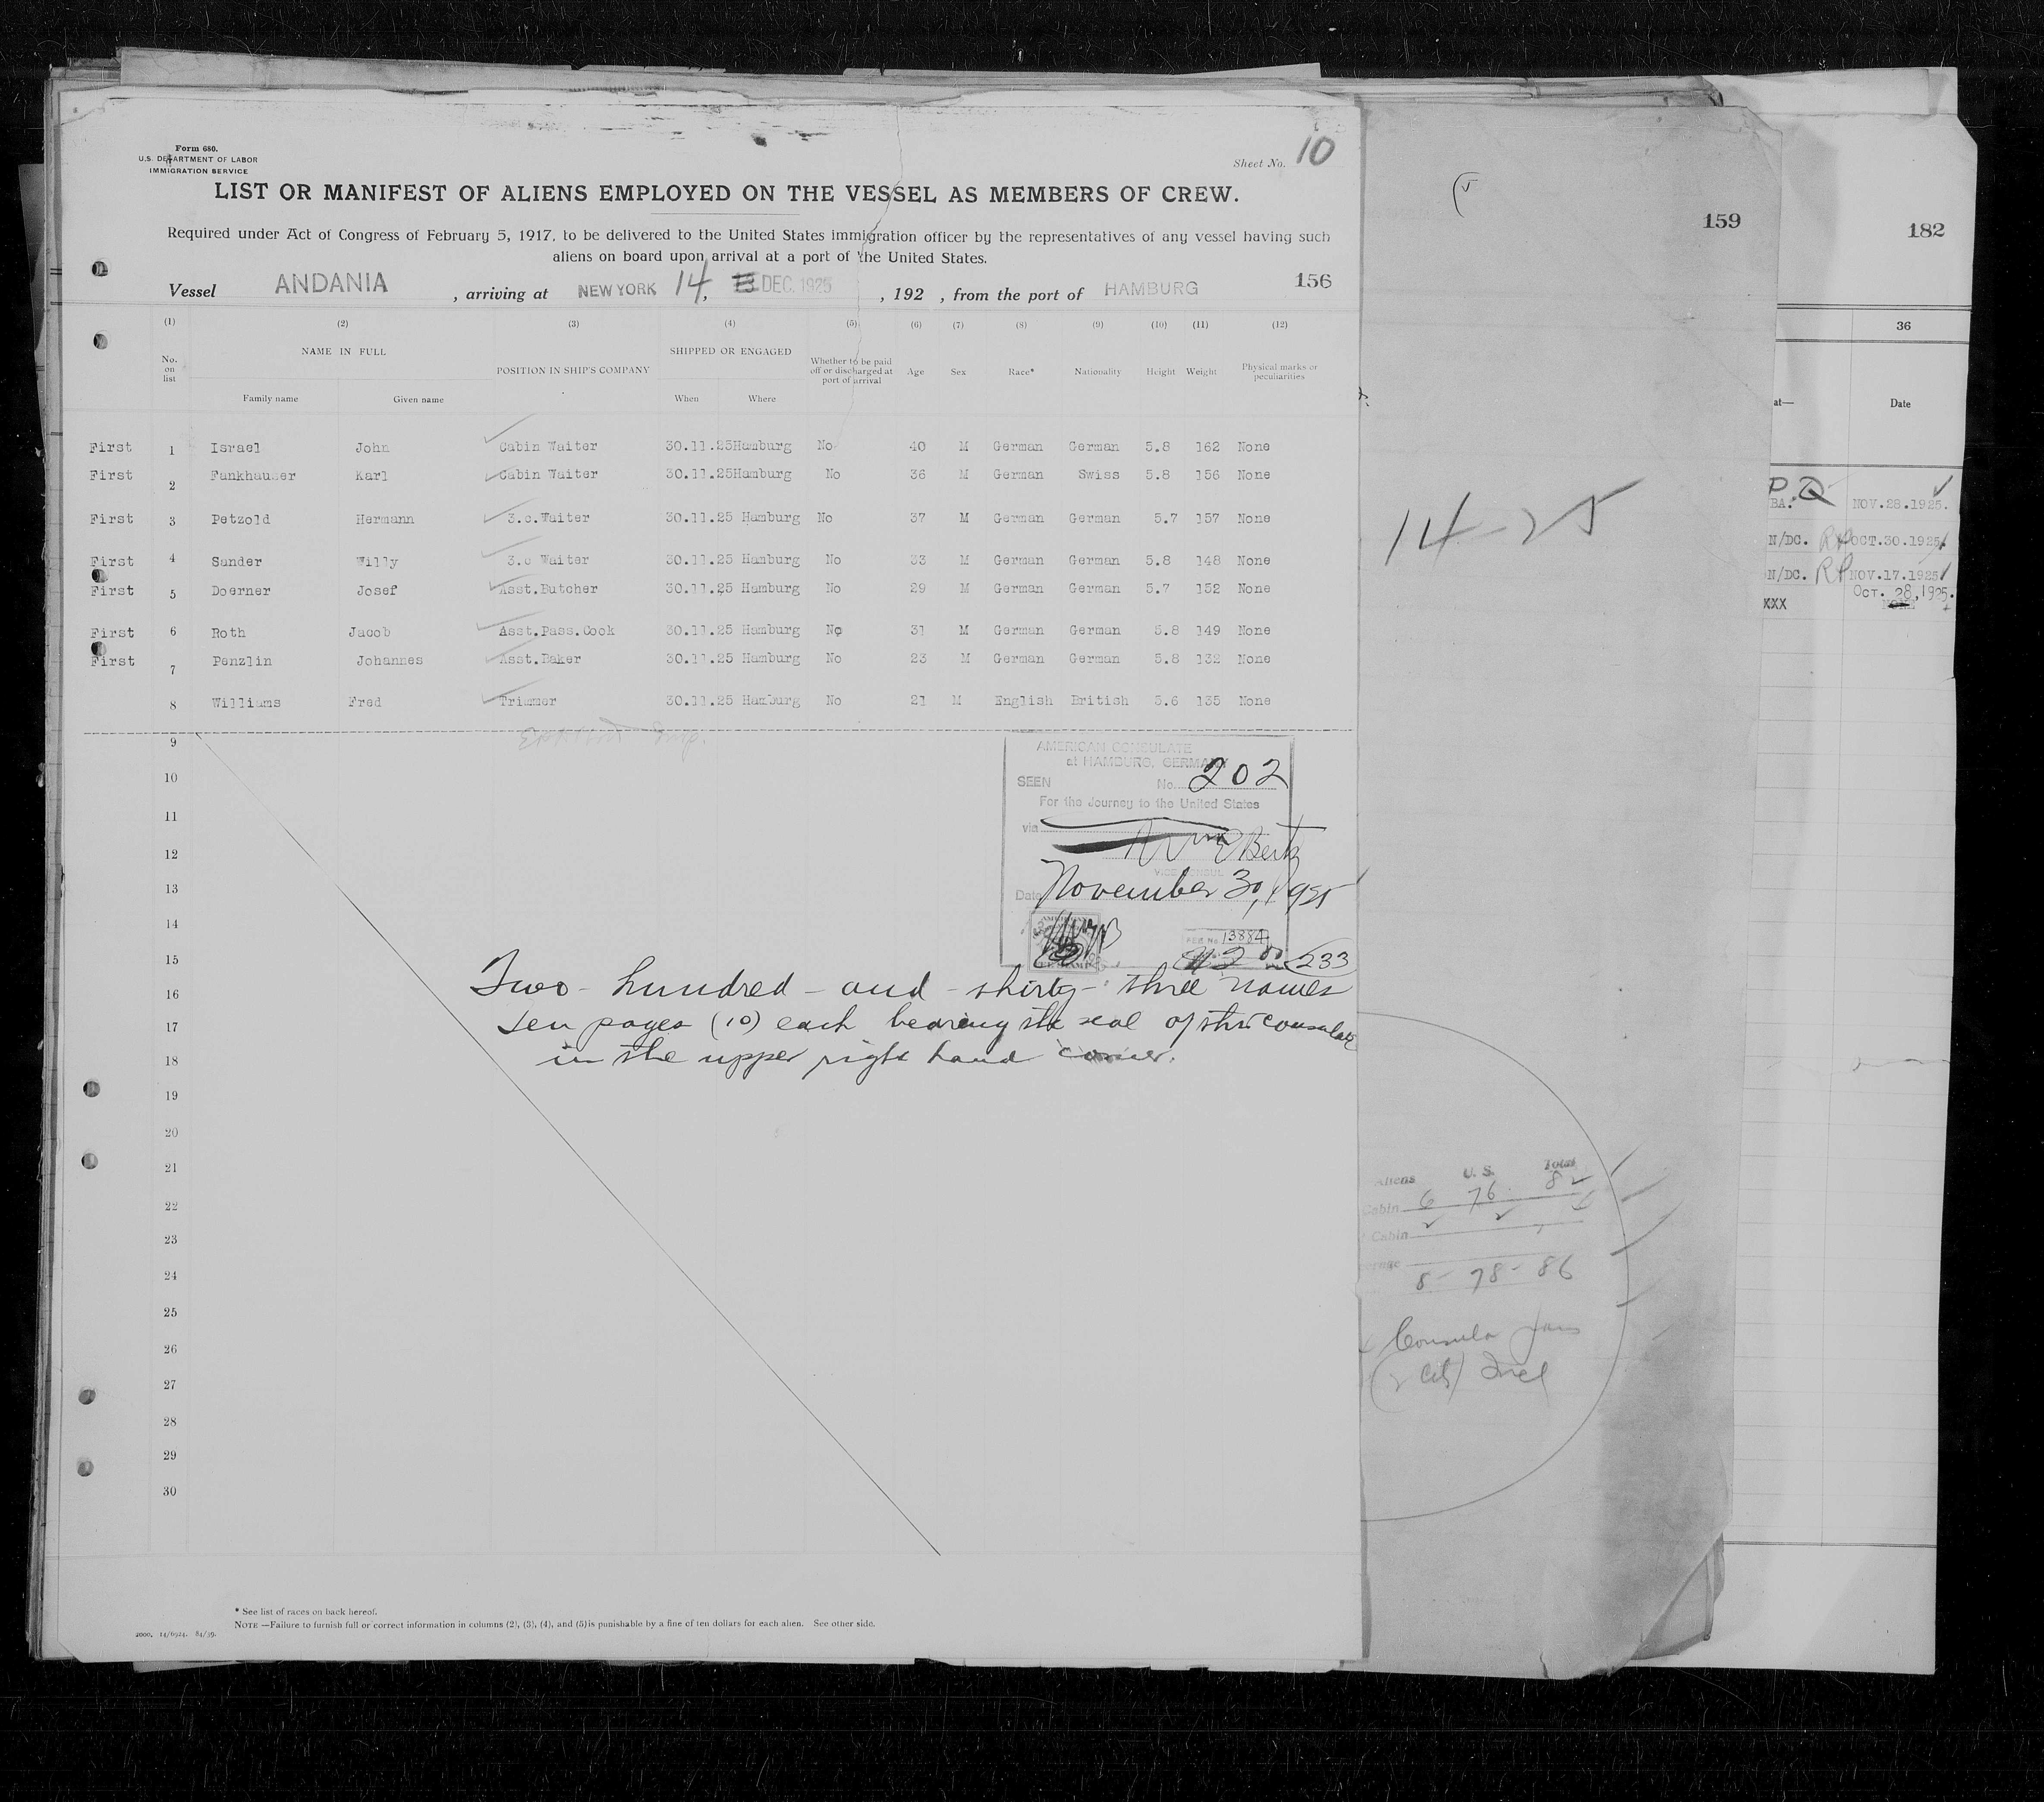 Form 680.
U.S. DEPARTMENT OF LABOR
IMMIGRATION SERVICE
Sheet No. 10
LIST OR MANIFEST OF ALIENS EMPLOYED ON THE VESSEL AS MEMBERS OF CREW.
Required under Act of Congress of February 5, 1917, to be delivered to the United States immigration officer by the representatives of any vessel having such
aliens on board upon arrival at a port of the United States.
Vessel ANDANIA , arriving at NEW YORK 14, DEC. 1925 , 192 , from the port of HAMBURG 156
(1) (2) (3) (4) (5) (6) (7) (8) (9) (10) (11) (12)
No. on list NAME IN FULL POSITION IN SHIP'S COMPANY SHIPPED OR ENGAGED Whether to be paid off or discharged at port of arrival Age Sex Race* Nationality Height Weight Physical marks or peculiarities
Family name Given name When Where
First 1 Israel John Cabin Waiter 30.11.25 Hamburg No 40 M German German 5.8 162 None
First 2 Fankhauser Karl Cabin Waiter 30.11.25 Hamburg No 36 M German Swiss 5.8 156 None
First 3 Petzold Hermann 3.c.Waiter 30.11.25 Hamburg No 37 M German German 5.7 157 None
First 4 Sander Willy 3.c Waiter 30.11.25 Hamburg No 33 M German German 5.8 148 None
First 5 Doerner Josef Asst.Butcher 30.11.25 Hamburg No 29 M German German 5.7 152 None
First 6 Roth Jacob Asst.Pass.Cook 30.11.25 Hamburg No 31 M German German 5.8 149 None
First 7 Penzlin Johannes Asst.Baker 30.11.25 Hamburg No 23 M German German 5.8 132 None
8 Williams Fred Trimmer 30.11.25 Hamburg No 21 M English British 5.6 135 None
9
10
11
12
13
14
15
16
17
18
19
20
21
22
23
24
25
26
27
28
29
30
AMERICAN CONSULATE
at HAMBURG, GERMANY
SEEN No. 202
For the Journey to the United States
via
VICE CONSUL
Date November 30, 1925
FEE No 13884
233
Two - hundred - and - thirty - three names
Ten pages (10) each bearing the seal of this consulate
in the upper right hand corner.
* See list of races on back hereof.
NOTE —Failure to furnish full or correct information in columns (2), (3), (4), and (5) is punishable by a fine of ten dollars for each alien. See other side.
2000, 14/6924. 84/39.
159
14-25
Aliens U. S. Total
Cabin 6 76 82
Cabin
8 - 78 - 86
182
36
at— Date
BA. NOV.28.1925.
N/DC. RP OCT.30.1925.
N/DC. RP NOV.17.1925
OCT. 28, 1925.
XXX NONE